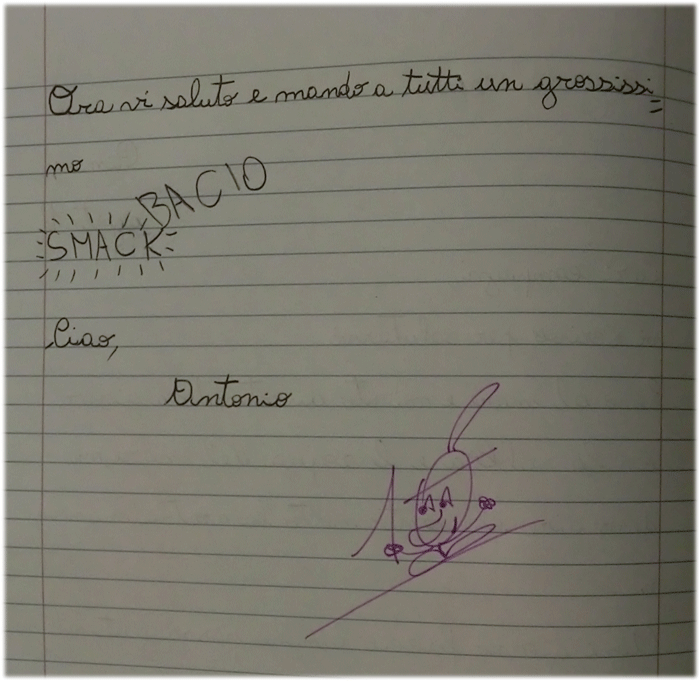 Ora vi saluto e mando a tutti un grossissi=
mo
BACIO
SMACK
Ciao,
Antonio